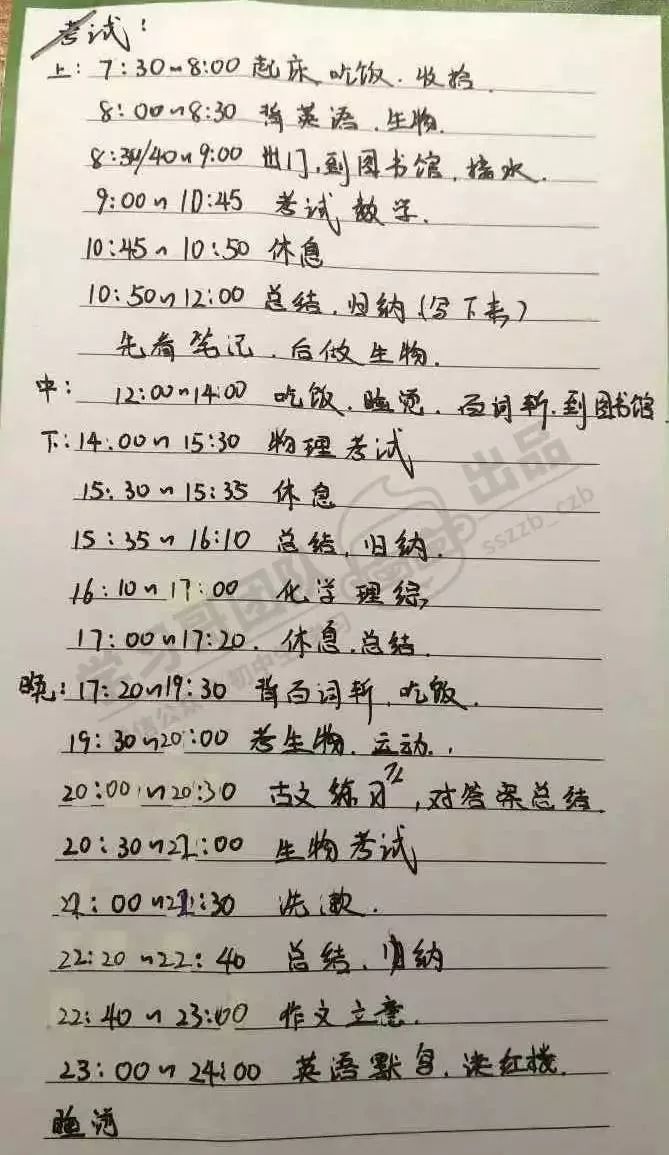 考试:
上: 7:30~8:00 起床、吃饭、收拾.
8:00~8:30 背英语、生物.
8:30/40~9:00 出门,到图书馆,接水.
9:00~10:45 考试数学.
10:45~10:50 休息
10:50~12:00 总结、归纳(写下来)
先看笔记,后做生物.
中: 12:00~14:00 吃饭、睡觉、百词斩、到图书馆
下: 14:00~15:30 物理考试
15:30~15:35 休息
15:35~16:10 总结、归纳.
16:10~17:00 化学理综
17:00~17:20. 休息、总结.
晚: 17:20~19:30 背百词斩、吃饭.
19:30~20:00 考生物、运动.
20:00~20:30 古文练习,对答案总结
20:30~21:00 生物考试
21:00~21:30 洗漱.
22:20~22:40 总结、归纳
22:40~23:00 作文立意.
23:00~24:00 英语默写、读红楼.
学习哥团队 出品
sszzb_czb